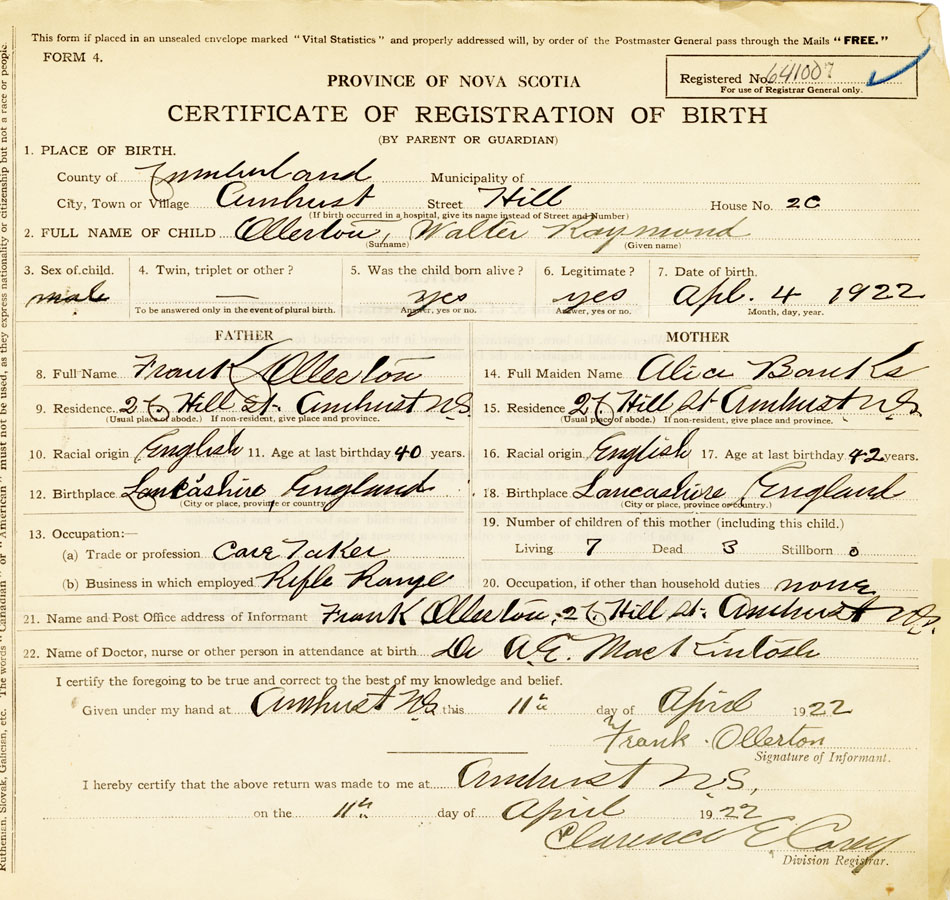 This form if placed in an unsealed envelope marked "Vital Statistics" and properly addressed will, by order of the Postmaster General pass through the Mails "FREE."
FORM 4.
PROVINCE OF NOVA SCOTIA
Registered No. 641007
For use of Registrar General only.
CERTIFICATE OF REGISTRATION OF BIRTH
(BY PARENT OR GUARDIAN)
1. PLACE OF BIRTH.
County of Cumberland Municipality of
City, Town or Village Amhurst Street Hill House No.
(If birth occurred in a hospital, give its name instead of Street and Number)
2. FULL NAME OF CHILD Ollerton, Walter Raymond
(Surname) (Given name)
3. Sex of child. 4. Twin, triplet or other? 5. Was the child born alive? 6. Legitimate? 7. Date of birth.
male — yes yes Apl. 4 1922
To be answered only in the event of plural birth. Answer, yes or no. Answer, yes or no. Month, day, year.
FATHER
8. Full Name Frank Ollerton
9. Residence. Hill St. Amhurst N.S.
(Usual place of abode.) If non-resident, give place and province.
10. Racial origin English 11. Age at last birthday 40 years.
12. Birthplace Lancashire England
(City or place, province or country.)
13. Occupation:—
(a) Trade or profession Care Taker
(b) Business in which employed Rifle Range
MOTHER
14. Full Maiden Name Alice Banks
15. Residence Hill St Amhurst N.S.
(Usual place of abode.) If non-resident, give place and province.
16. Racial origin English 17. Age at last birthday 42 years.
18. Birthplace Lancashire England
(City or place, province or country.)
19. Number of children of this mother (including this child.)
Living 7 Dead 3 Stillborn 0
20. Occupation, if other than household duties none
21. Name and Post Office address of Informant Frank Ollerton, Hill St. Amhurst N.S.
22. Name of Doctor, nurse or other person in attendance at birth Dr A.E. MacKintosh
I certify the foregoing to be true and correct to the best of my knowledge and belief.
Given under my hand at Amhurst N.S. this 11th day of April 1922
Frank Ollerton
Signature of Informant.
I hereby certify that the above return was made to me at Amhurst N.S.,
on the 11th day of April 1922
Clarence E Corey
Division Registrar.
Ruthenian, Slovak, Galician, etc. The words "Canadian" or "American" must not be used, as they express nationality or citizenship but not a race or people.